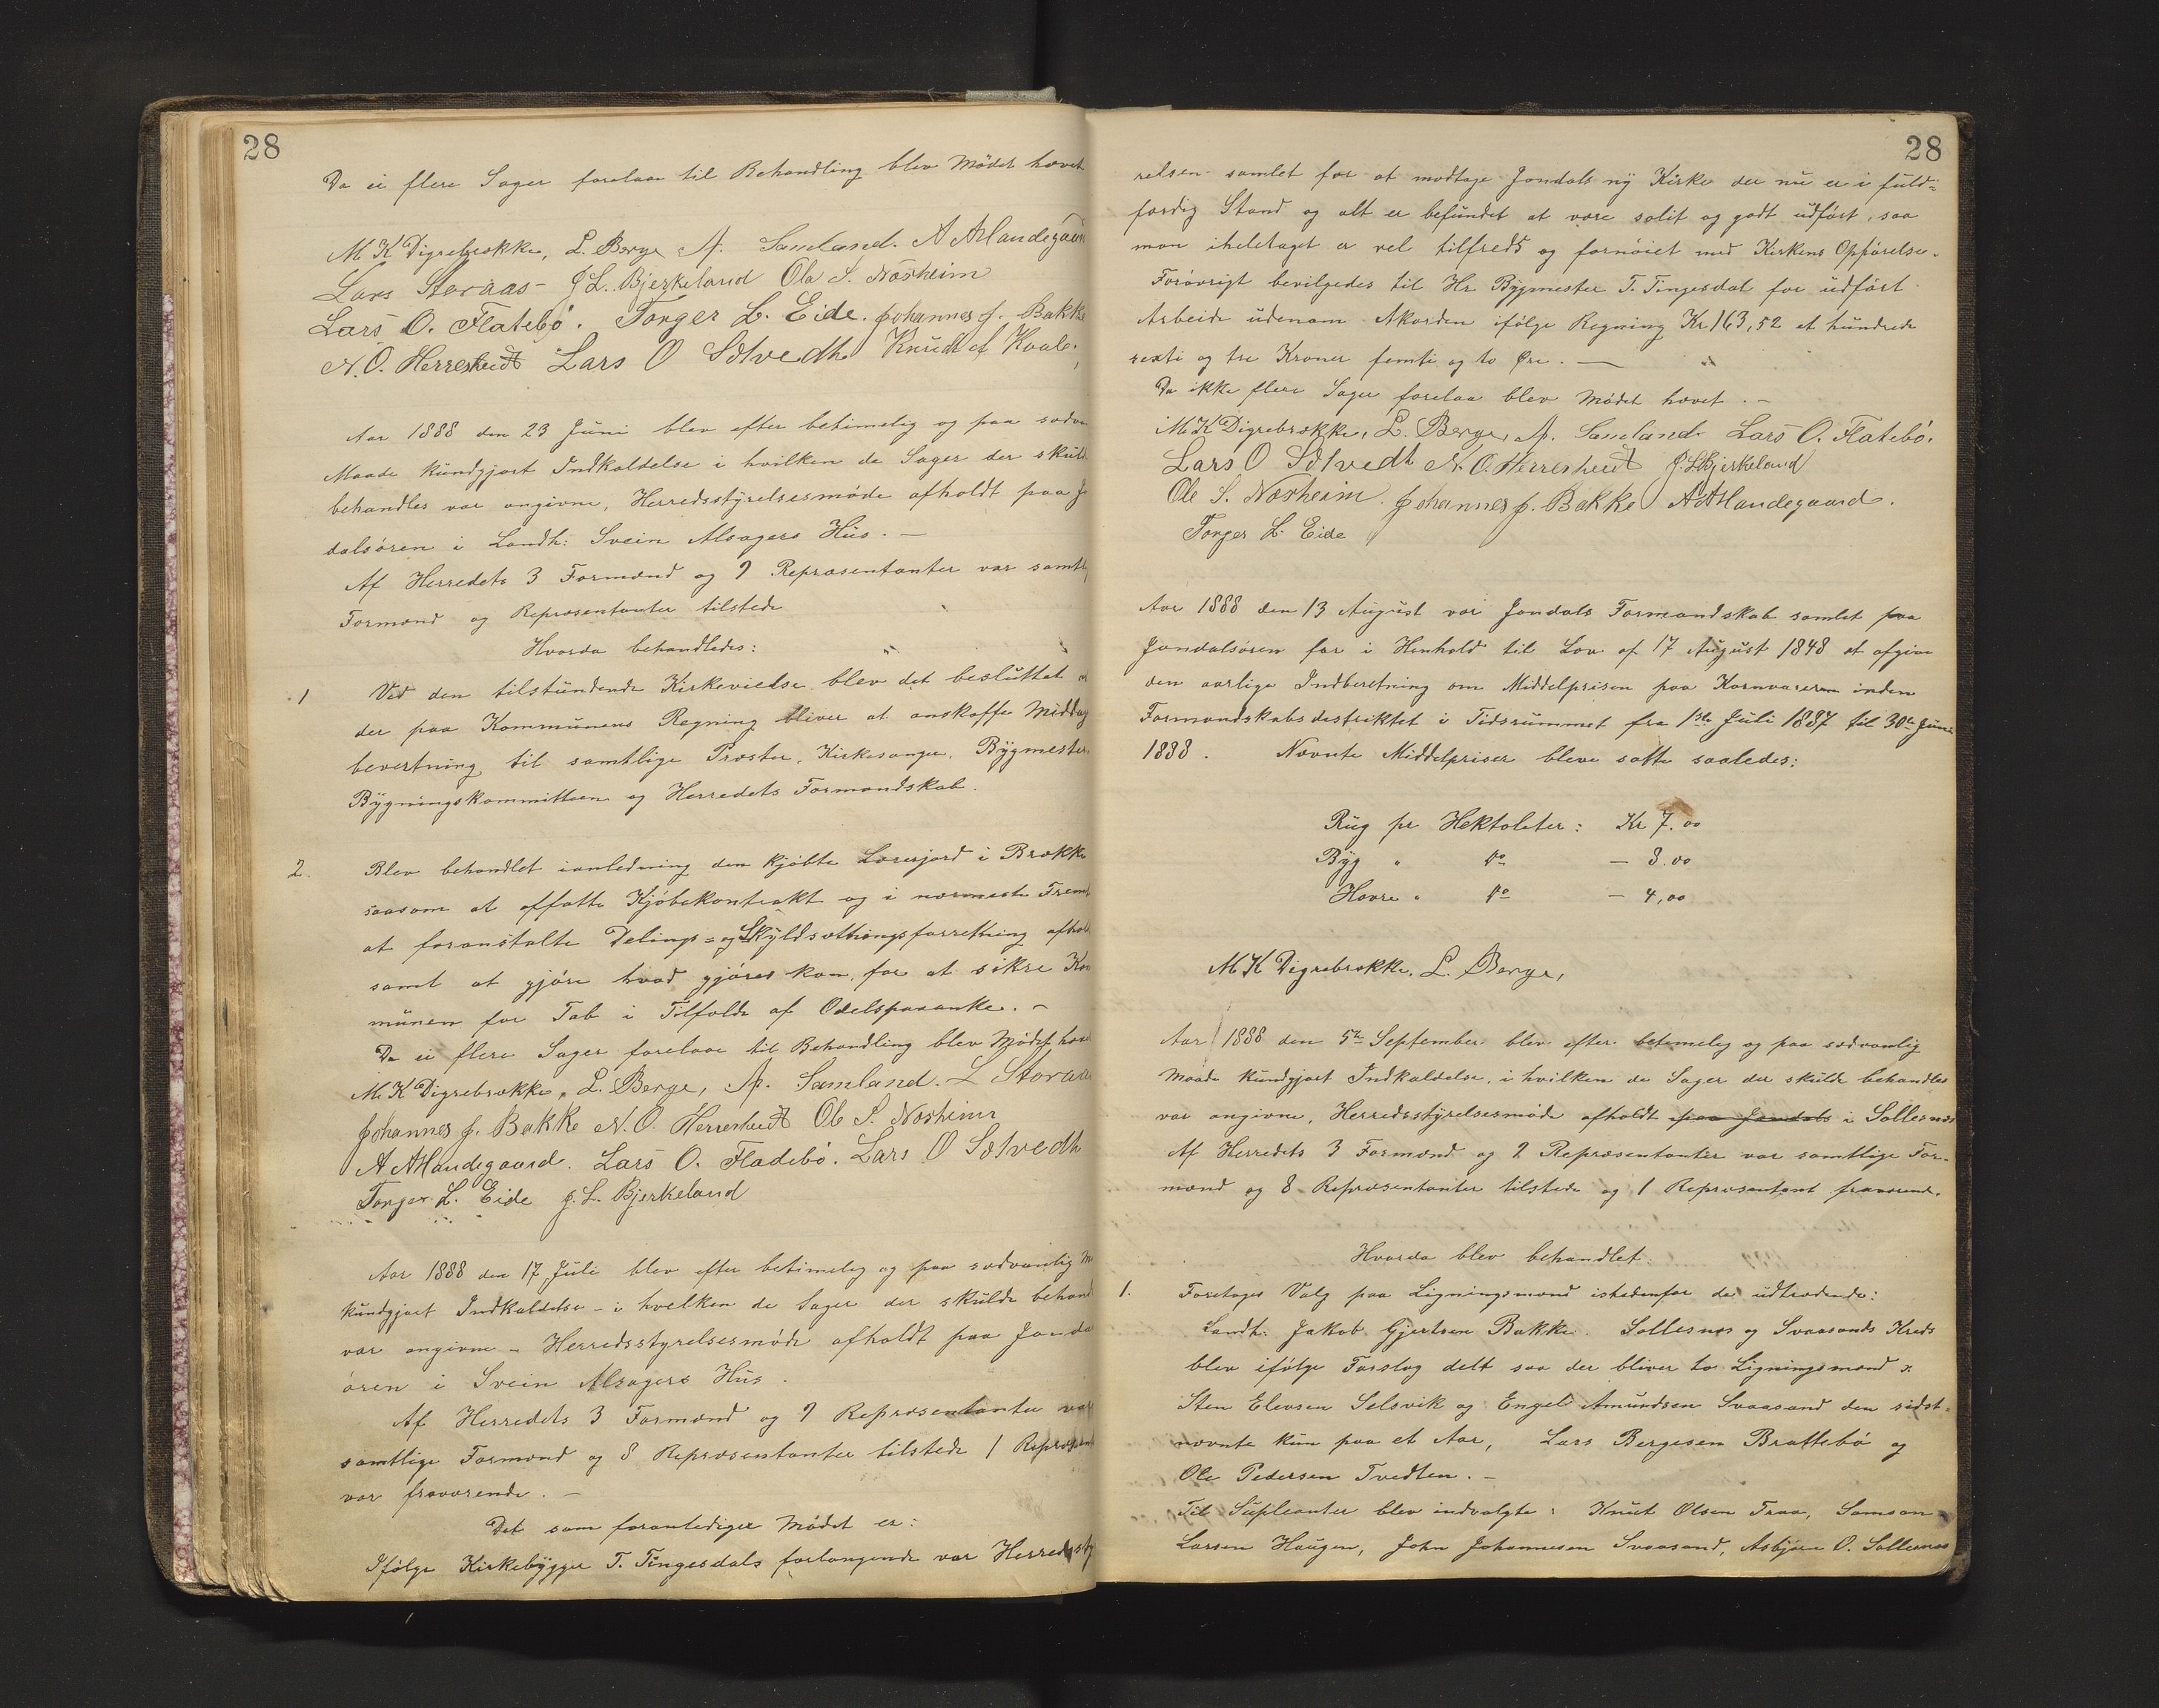 28
Da ei flere Sager forelaae til Behandling blev Mödet hævet
M K Digrebrække, L. Berge, A. Samland. A AHandegaard
Lars Storaas - J L. Bjerkeland Ole S. Næsheim
Lars O. Flatebö. Torger L. Eide. Johannes J. Bakke
N. O. Herresheidt Lars O Sætvedt Knudt
Aar 1888 den 23 Juni blev efter betimelig og paa sædva
Maade kundgjort Indkaldelse i hvilken de Sager der skuld
behandles var angivne, Herredsstyrelsesmöde afholdt paa J
dalsören i Landh: Svein Alsagers Hus. —
Af Herredets 3 Formænd og 9 Repræsentanter var samtl
Formænd og Repræsentanter tilstede
Hvorda behandledes:
1 Ved den tilstundende Kirkevielse blev det besluttet
der paa Kommunens Regning bliver at anskaffe Middag
bevertning til samtlige Præster, Kirkesanger, Bygmester
Bygningskommitteen og Herredets Formandskab.
2. Blev behandlet ianledning den kjöbte Lærerjord i Brække
saasom at affatte Kjöbekontrakt og i nærmeste Fremt
at foranstalte Delings- og Skyldsætningsforretning afhol
samt at gjöre hvad gjöres kan, for at sikre Kom
munen for Tab i Tilfælde af Odelspaaanke. —
Da ei flere Sager forelaae til Behandling blev Mödet hæv
M K Digrebrække, L. Berge, A. Samland. L Storaas
Johannes J. Bakke N. O. Herresheidt Ole S. Næsheim
A AHandegaard. Lars O. Fladebö. Lars O Sætvedt
Torger L. Eide J. L. Bjerkeland
Aar 1888 den 17 Juli blev efter betimelig og paa sædvanlig M
kundgjort Indkaldelse - i hvelken de Sager der skulde behand
var angivne - Herredsstyrelsesmöde afholdt paa Jonda
ören i Svein Alsagers Hus.
Af Herredets 3 Formænd og 9 Repræsentanter var
samtlige Formænd og 8 Repræsentanter tilstede 1 Repræsent
var fraværende. —
Det som foranlediger Mödet er:
Ifölge Kirkebygger T. Tingesdals forlangende var Herredssty
28
relsen samlet for at modtage Jondals ny Kirke der nu er i fuld-
færdig Stand og alt er befundet at være solit og godt udfört, saa
man iheletaget er vel tilfreds og fornöiet med Kirkens Opförelse.
Foróvrigt bevilgedes til Hr Bygmester T. Tingesdal for udfört
Arbeide udenom Akorden ifölge Regning Kr 163,52 et hundrede
sexti og tre Kroner femti og to Öre. —
Da ikke flere Sager forelaa blev Mödet hævet. —
M K Digrebrække, L. Berge, A. Samland. Lars O. Flatebö.
Lars O Sætvedt N. O. Herresheidt J. L Bjerkeland
Ole S. Næsheim. Johannes J. Bakke A AHandegaard.
Torger L. Eide
Aar 1888 den 13 August var Jondals Formandskab samlet paa
Jondalsören for i Henhold til Lov af 17 August 1848 at afgive
den aarlige Indberetning om Middelprisen paa Kornvarer inden
Formandskabsdestriktet i Tidsrummet fra 1ste Juli 1887 til 30te Juni
1888. Nævnte Middelpriser bleve satte saaledes:
Rug pr Hektoleter: Kr 7.00
Byg " do — 8.00
Havre " do — 4,00
M K Digrebrække, L. Berge,
Aar 1888 den 5te September blev efter betimeleg og paa sædvanlig
Maade kundgjort Indkaldelse, i hvilken de Sager der skulde behandles
var angivne, Herredsstyrelsesmöde afholdt paa Jondals i Sollesnæs
Af Herredets 3 Formænd og 9 Repræsentanter var samtlige For-
mænd og 8 Repræsentanter tilstede og 1 Repræsentant fraværende.
Hvorda blev behandlet:
1. Foretages Valg paa Ligningsmænd istedenfor de udtrædende:
Landh: Jakob Gjertsen Bakke. Sollesnæs og Svaasands Kreds
blev ifölge Forslag delt saa der bliver to Ligningsmænd
Sten Elevsen Selsvik og Engel Amundsen Svaasand den sidst-
nævnte kun paa et Aar, Lars Bergesen Brattebö og
Ole Pedersen Tvedten. —
Til Supleanter blev indvalgte: Knut Olsen Traa, Samson
Larsen Haugen, John Johannesen Svaasand, Asbjørn O. Sollesnæs